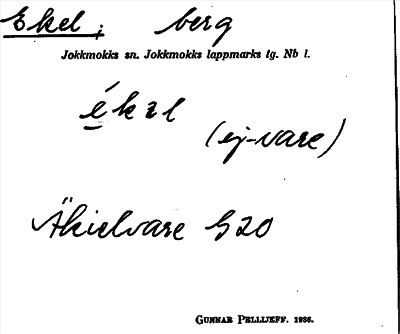 Ekel, berg
Jokkmokks sn. Jokkmokks lappmarks tg. Nb l.
ékəl
(ej-vare)
Äkielvare G20
GUNNAR PELLIJEFF. 1936.